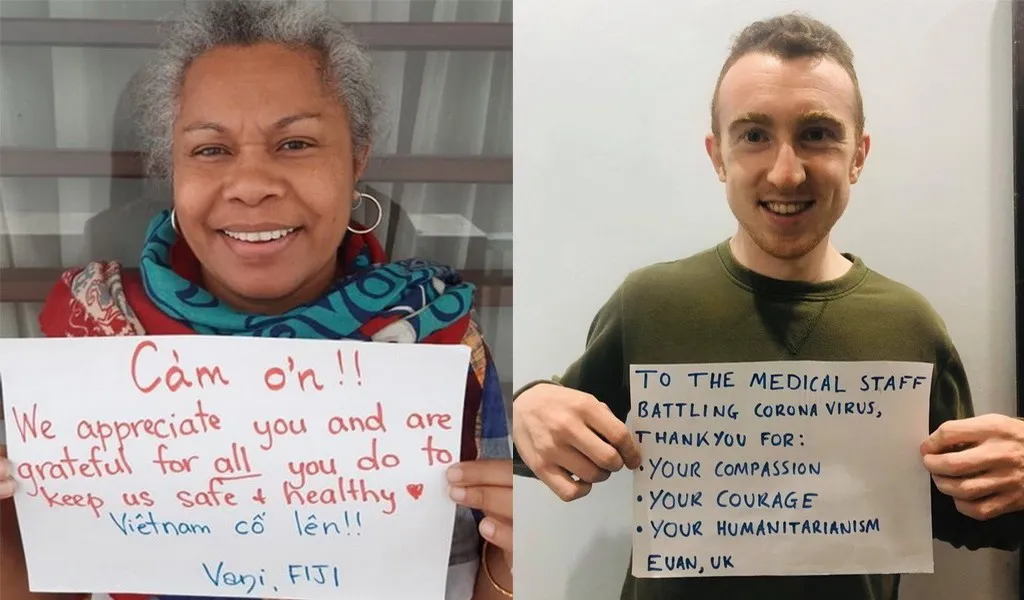 Càm ơ'n!!
We appreciate you and are
grateful for all you do to
keep us safe + healthy ♥
Viêtnam cố lên!!
Vani, FIJI
TO THE MEDICAL STAFF
BATTLING CORONA VIRUS,
THANKYOU FOR:
• YOUR COMPASSION
• YOUR COURAGE
• YOUR HUMANITARIANISM
EUAN, UK